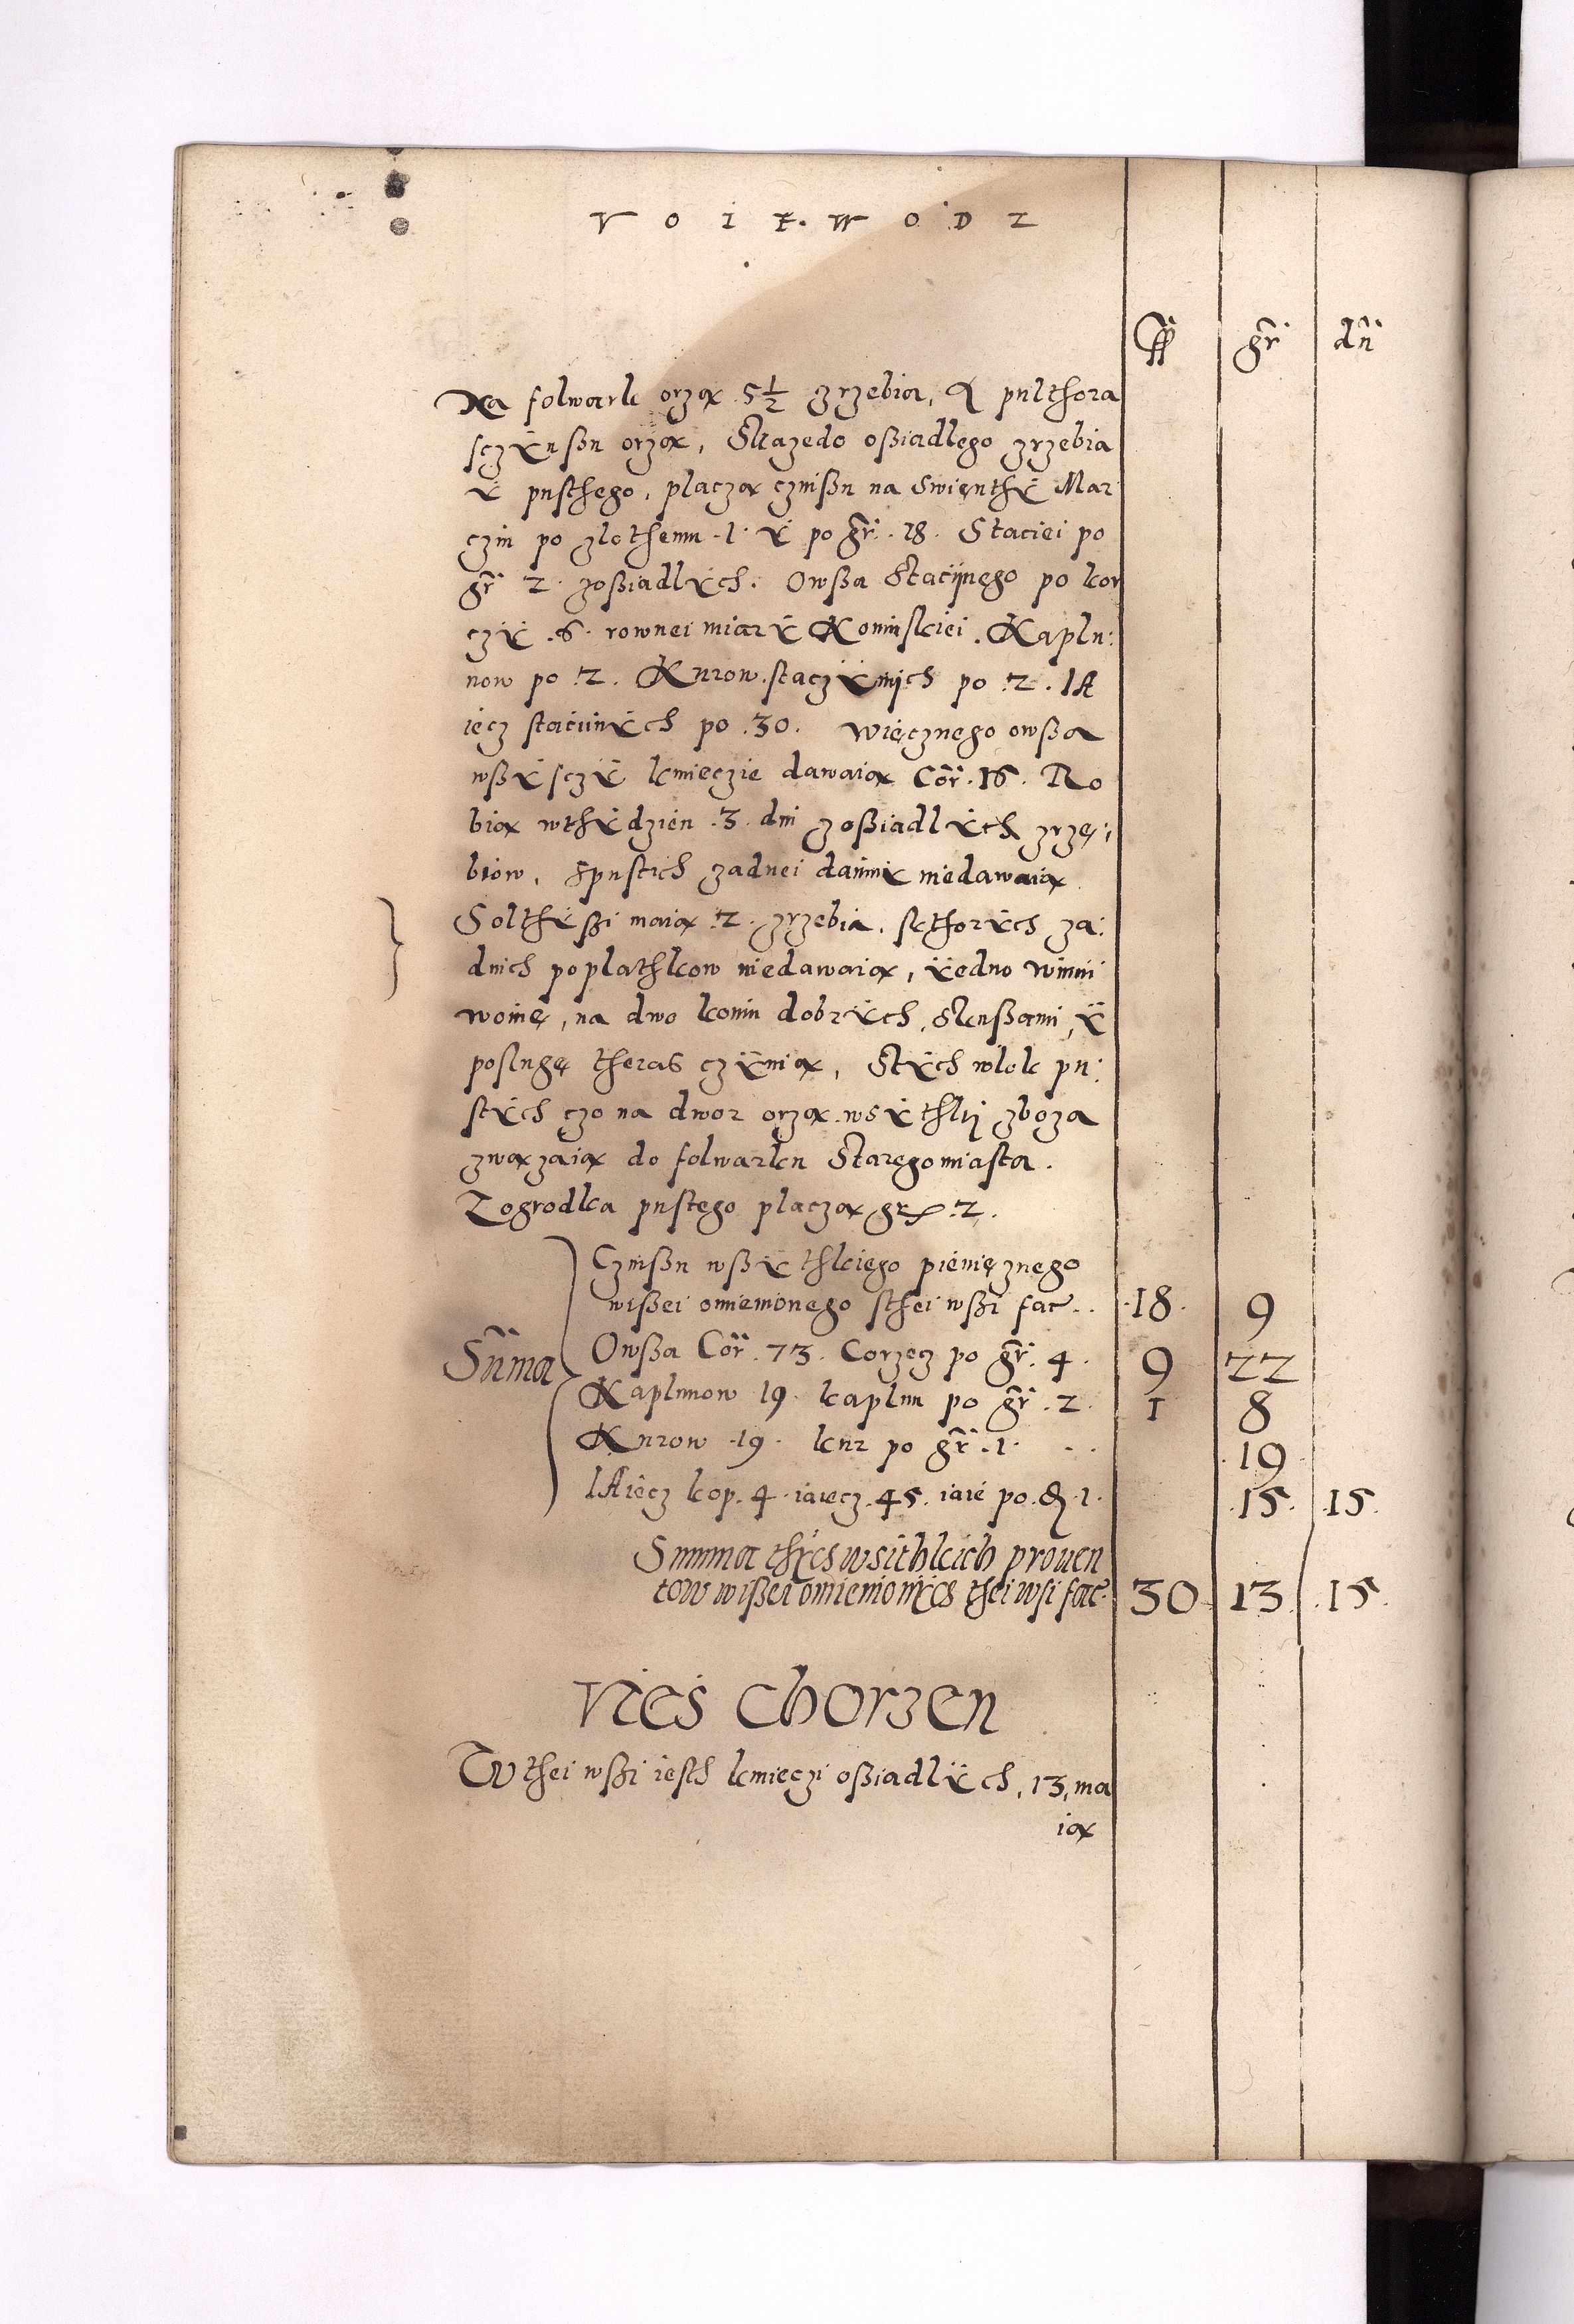 VOIEWODZ
ff gr dn
Na folwark orzą 5½ zrzebia, A pulthora
sczÿnßu orzą, Skazedo oßiadlego zrzebia
ÿ pusthego, placzą czinßu na Swięnthÿ Mar
czin po zlothemu .1. ÿ po gr. 18. Staciei po
gr 2. zoßiadlÿch. Owßa Stacijnego po kor
czÿ .6. rownei miarÿ Koninskiei. Kaplu:
now po .2. Kurow staczÿnÿch po .2. IA
iecz staciinÿch po .30. Więcznego owßa
wßÿsczÿ kmieczie dawaią Cor. 16. Ro
bią wthÿdzien .3. dni zoßiadlÿch zrzę:
biow, Spustich zadnei dannÿ niedawaią.
Solthÿßi maią .2. zrzebia, skthorÿch za:
dnich poplathkow niedawaią, ÿedno winni
woinę, na dwo koniu dobrÿch, Skußami, ÿ
poslugę theraß czÿnią, Stÿch wlok pu:
stÿch czo na dwor orzą. wsÿthkÿ zboza
zwązaią do folwarku Staregomiasta.
Zogrodka pustego placzą gr .2.
Czinßu wßÿthkiego pienięznego
wißei omienionego sthei wßi fac. . 18. 9
Owßa Cor. 73. Corzecz po gr. 4. 9 22
Suma
Kaplunow 19. kaplun po gr. 2. 1 8
Kurow .19. kur po gr .1. . . 19.
IAiecz kop. 4. iaiecz. 45. iaie po. ₰ .1. 15. 15.
Summa thÿch wsithkich prouen
tow wißei omienionÿch thei wsi fac. 30 13. 15.
Vies Chorzen
W thei wßi iesth kmieczi oßiadlÿch, 13, ma
ią